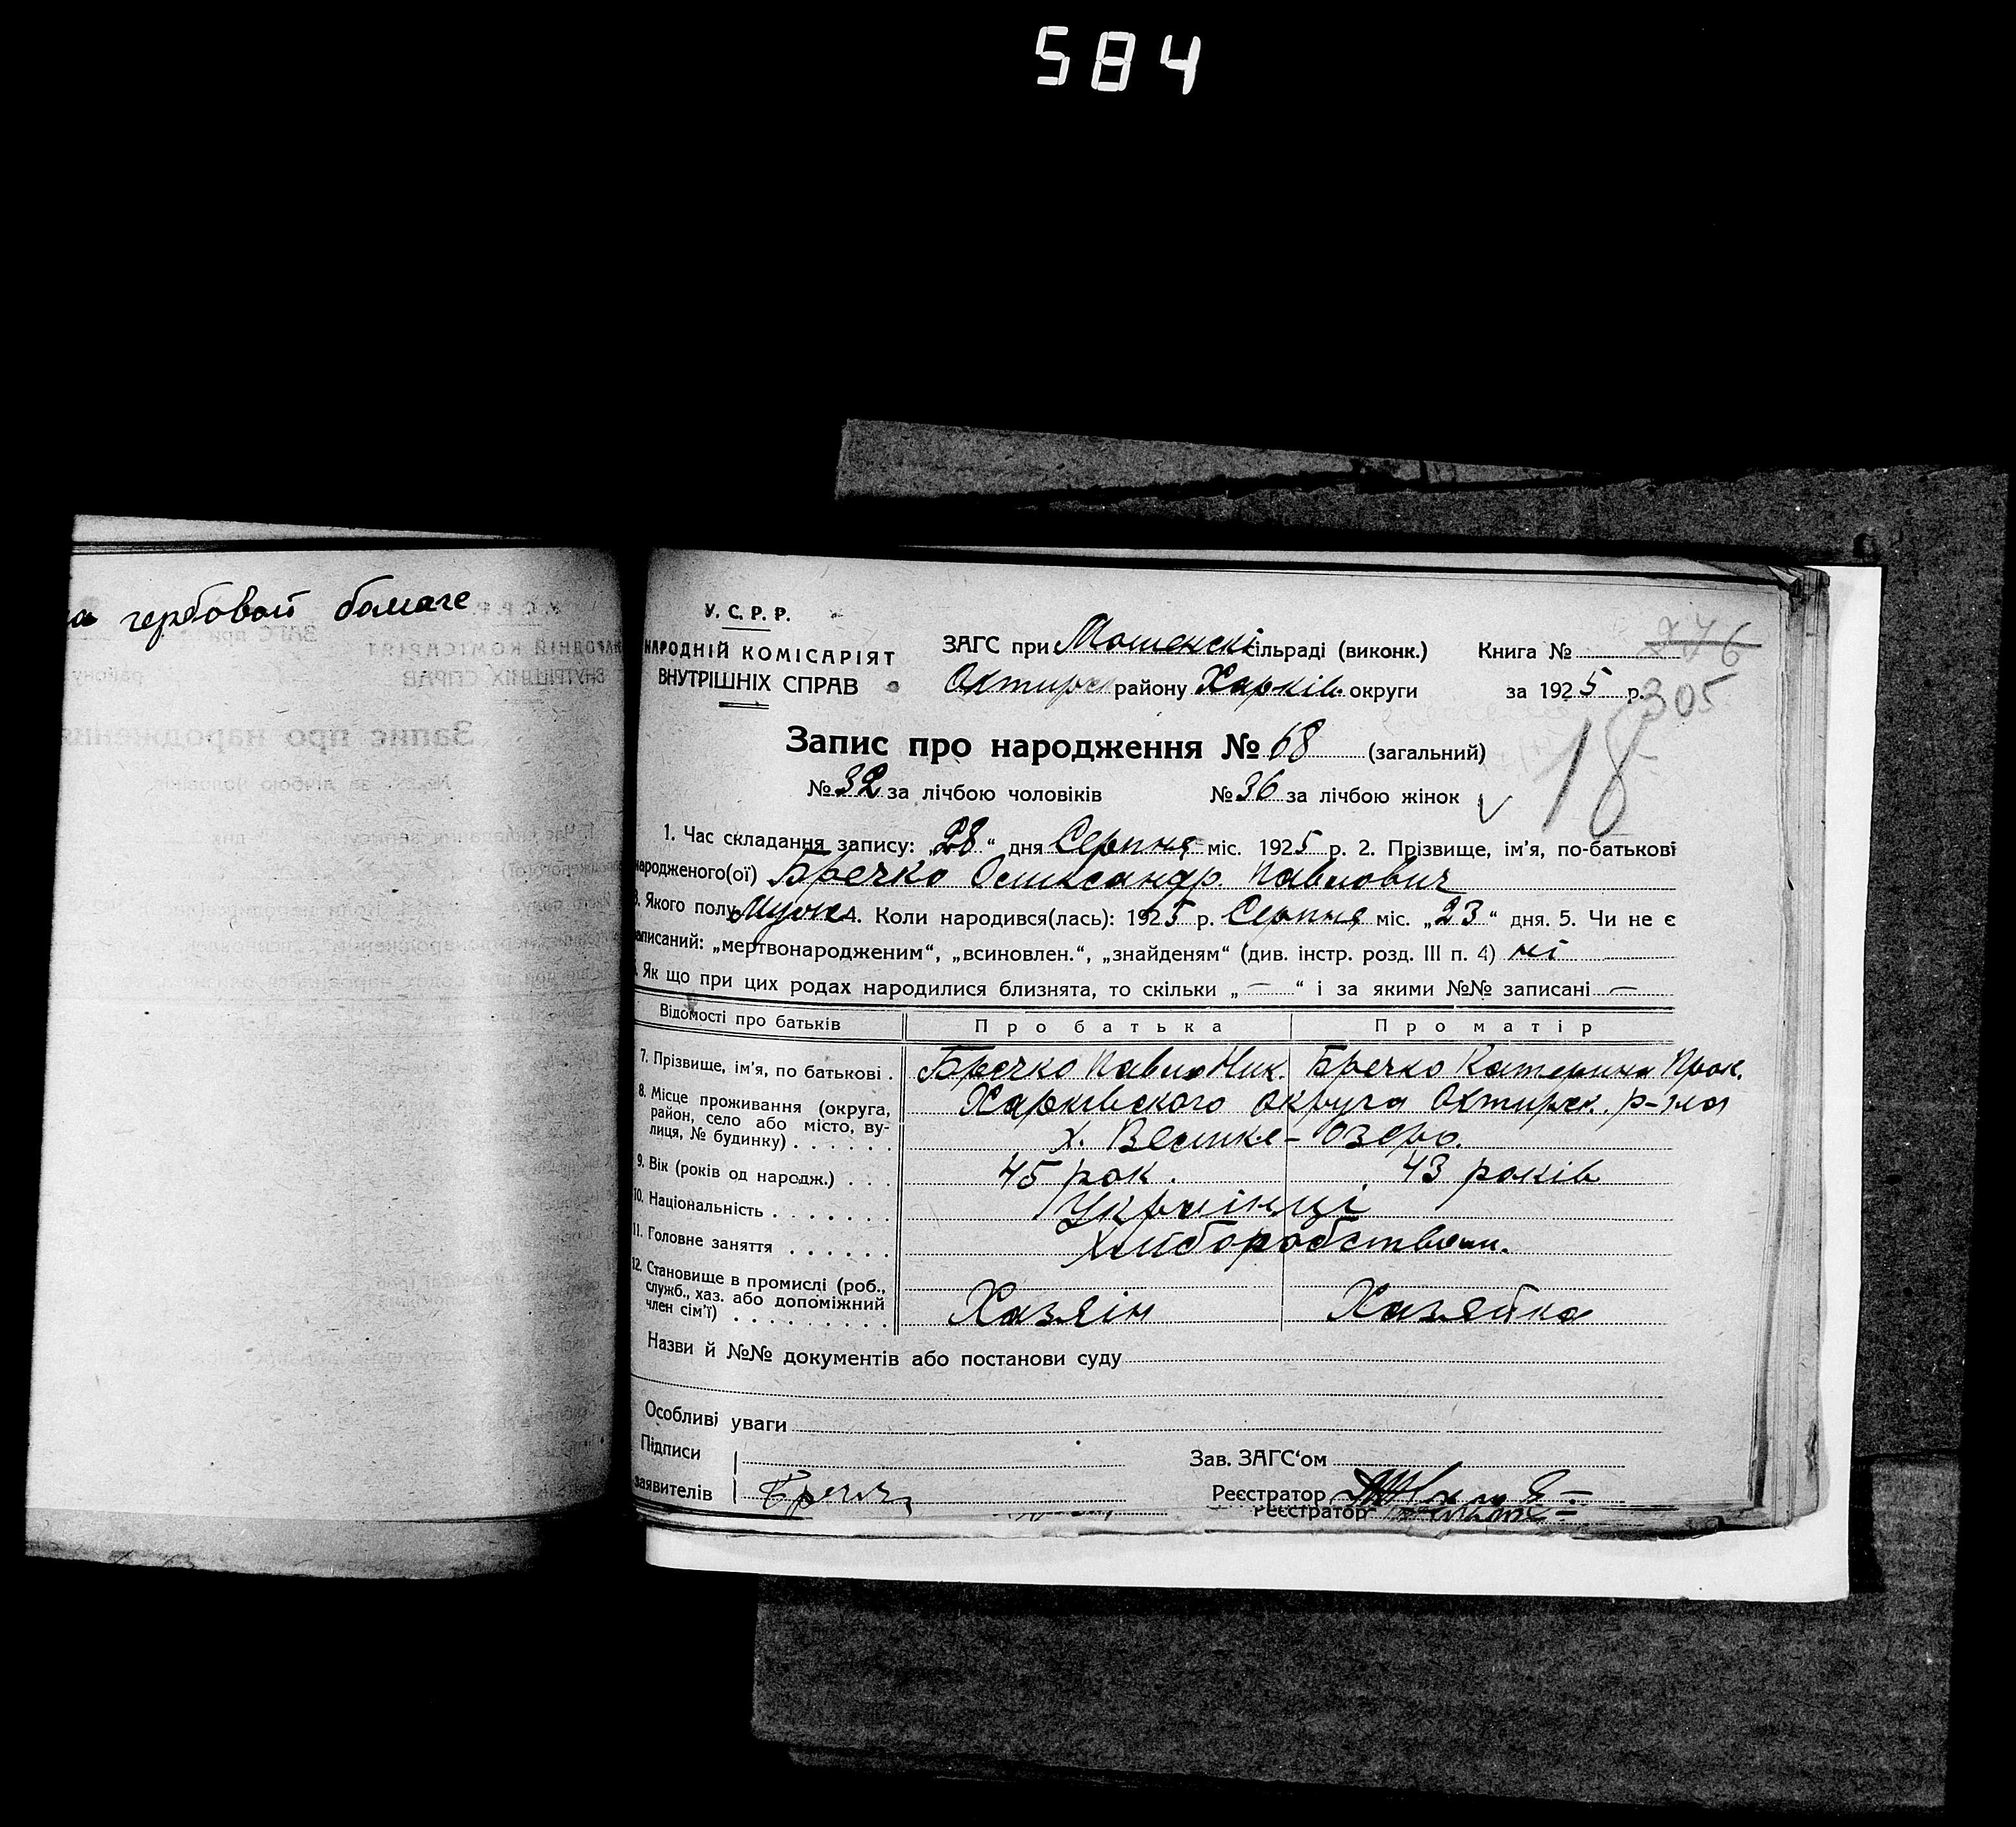 584
гербовой бомаге
У.С.Р.Р.
НАРОДНІЙ КОМІСАРІЯТ
ВНУТРІШНІХ СПРАВ
ЗАГС при Мошенскі сільраді (виконк.) Книга № 276
Охтирс району Харків. округи за 1925 р. 305
Запис про народження № 68 (загальний) 18
№ 32 за лічбою чоловіків № 36 за лічбою жінок
1. Час складання запису: „28“ дня Серпня міс. 1925 р. 2. Прізвище, ім'я, по-батькові
народженого(ої) Бречко Олександр. Павлович
3. Якого полу Муж. 4. Коли народився(лась): 1925 р. Серпня міс. „23“ дня. 5. Чи не є
записаний: „мертвонародженим“, „всиновлен.“, „знайденям“ (див. інстр. розд. III п. 4) ні
Як що при цих родах народилися близнята, то скільки „—“ і за якими №№ записані —
Відомості про батьків Про батька Про матір
7. Прізвище, ім'я, по батькові . Бречко Павло Ник. Бречко Катерина Прок.
8. Місце проживання (округа, район, село або місто, вулиця, № будинку) . . . . . . Харківского округа Охтирск. р-на
х. Велике-Озеро.
9. Вік (років од народж.) . . . 45 рок. 43 років
10. Національність . . . . . . . Українці
11. Головне заняття . . . . . . Хліборобством.
12. Становище в промислі (роб., служб., хаз. або допоміжний член сім'ї) . . . . . . . . . Хазяін Хазяйка
Назви й №№ документів або постанови суду
Особливі уваги
Підписи Зав. ЗАГС'ом
заявителів Реєстратор
Реєстратор